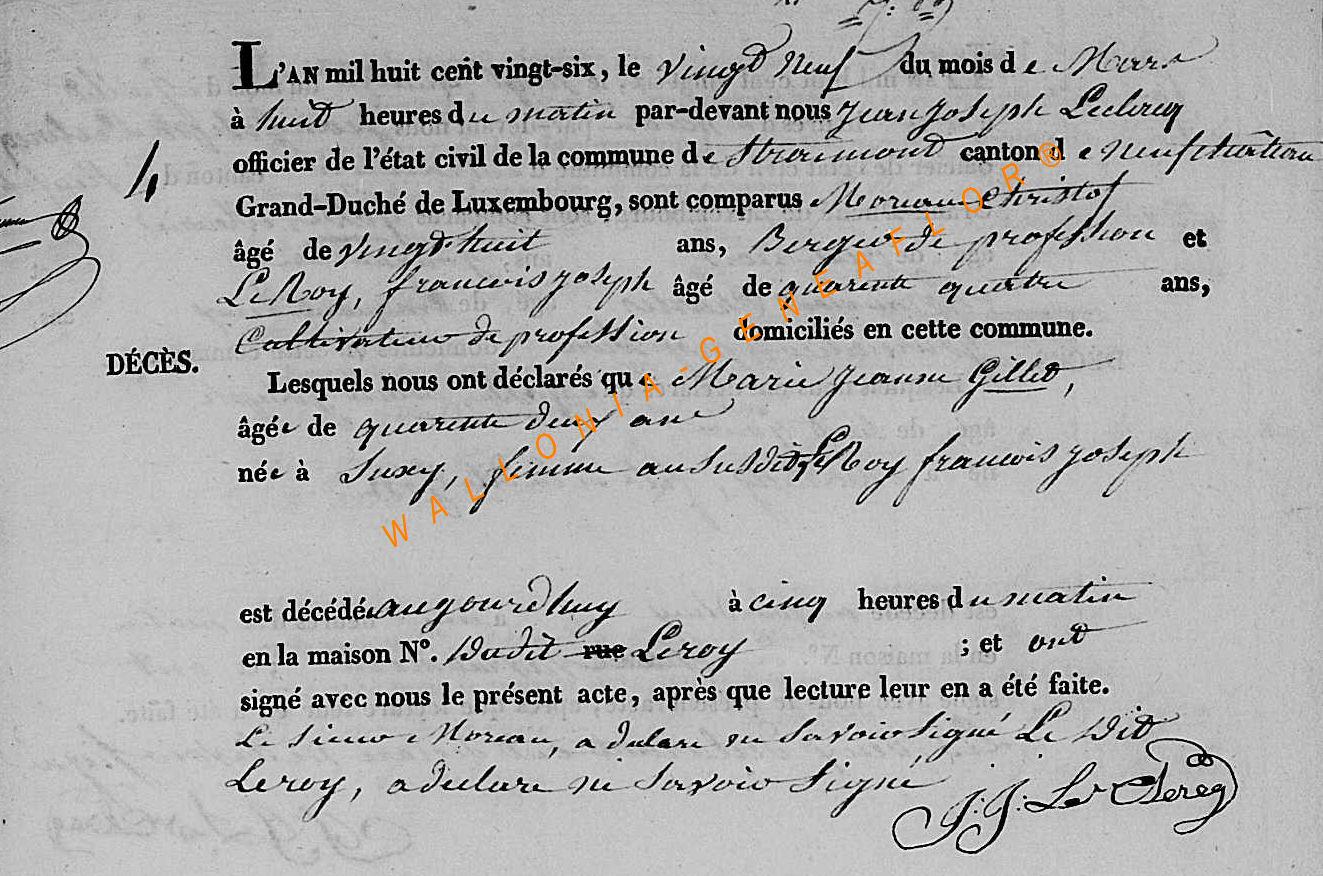 L'AN mil huit cent vingt-six, le vingt neuf du mois de Mars
à huit heures du matin par-devant nous jean joseph Leclercq
officier de l'état civil de la commune de Straimont canton de neufchâteau
4
Grand-Duché de Luxembourg, sont comparus Moreau Christof
âgé de vingt huit ans, Berger de profession et
Le Roy, francois joseph âgé de quarente quatre ans,
Cultivateur de profession domiciliés en cette commune.
DÉCÈS.
Lesquels nous ont déclarés que Marie jeanne Gillet,
âgée de quarente deux an
née à Suxy, femme au susdit le Roy francois joseph
est décédée augourdhuy à cinq heures du matin
en la maison N°. dudit rue Leroy ; et ont
signé avec nous le présent acte, après que lecture leur en a été faite.
Le sieur Moreau, a declare ne savoir signé Le dit
Leroy, a declare ne savoir signé
J: J: Le Clercq
WALLONIA-GENEAFLOR®